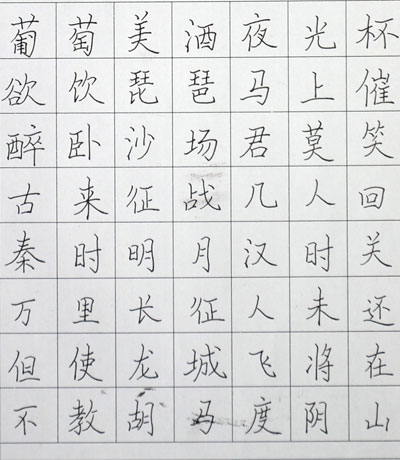 葡萄美酒夜光杯
欲饮琵琶马上催
醉卧沙场君莫笑
古来征战几人回
秦时明月汉时关
万里长征人未还
但使龙城飞将在
不教胡马度阴山